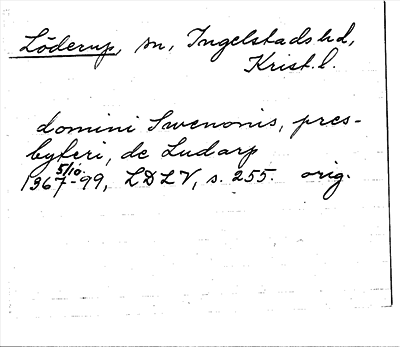 Löderup, sn, Ingelstads hd,
Krist. l.
domini Swenonis, pres-
byteri, de Ludarp
5/10.
1367-99, LDLV, s. 255. orig.